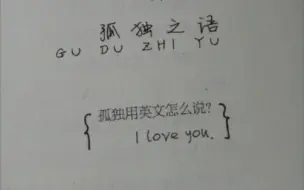 孤独之语
GU DU ZHI YU
孤独用英文怎么说?
I love you.